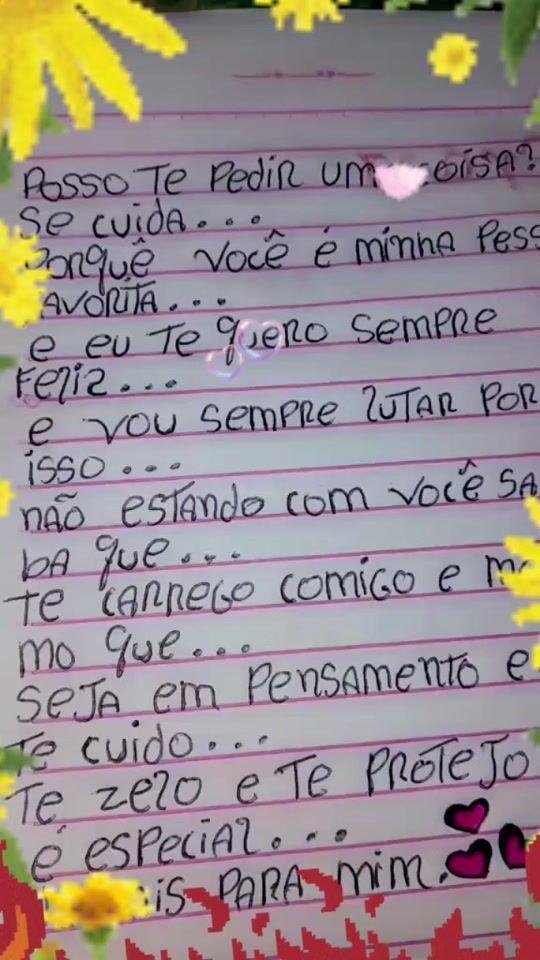 Posso Te Pedir um coisa?
Se cuida...
Porquê você é minha Pess
FAVORITA...
e eu Te quero sempre
Feliz...
e vou sempre lutar por
isso...
não estando com você sa
ba que...
Te carrego comigo e
mo que...
Seja em pensamento e
Te cuido...
Te zelo e Te protejo
é especial...
para mim.